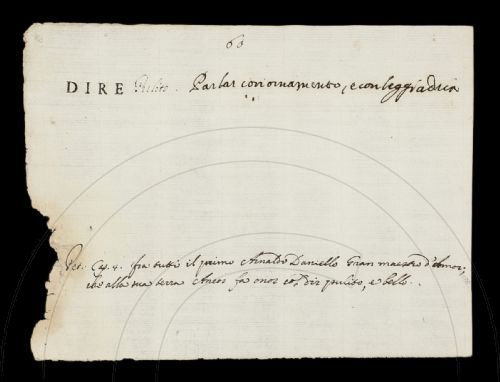 60
DIRE Pulito. Parlar con ornamento, e con leggiadria
Pet. Cap. 4. fra tutti il primo Arnaldo Daniello Gran maestro d'amor,
che alla sua terra Ancor fa onor col dir pulito, e bello.